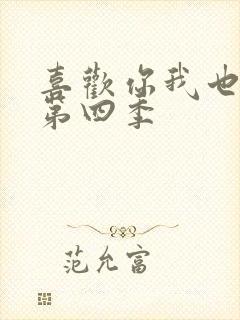 喜歡你我也
第四季
范允富